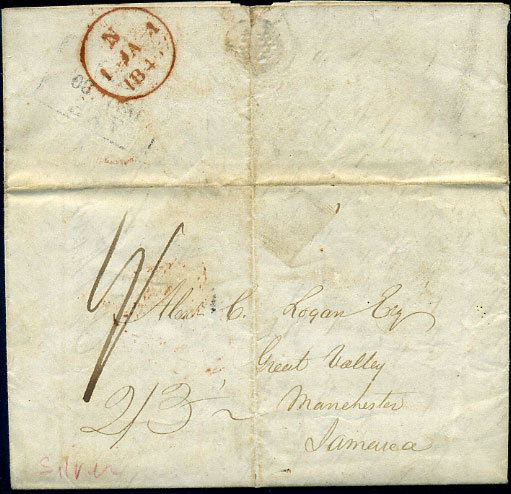 N
1 JA 1
184
1/
Alexr C. Logan Esq
Great Valley
2/3
Manchester
Jamaica
Silver